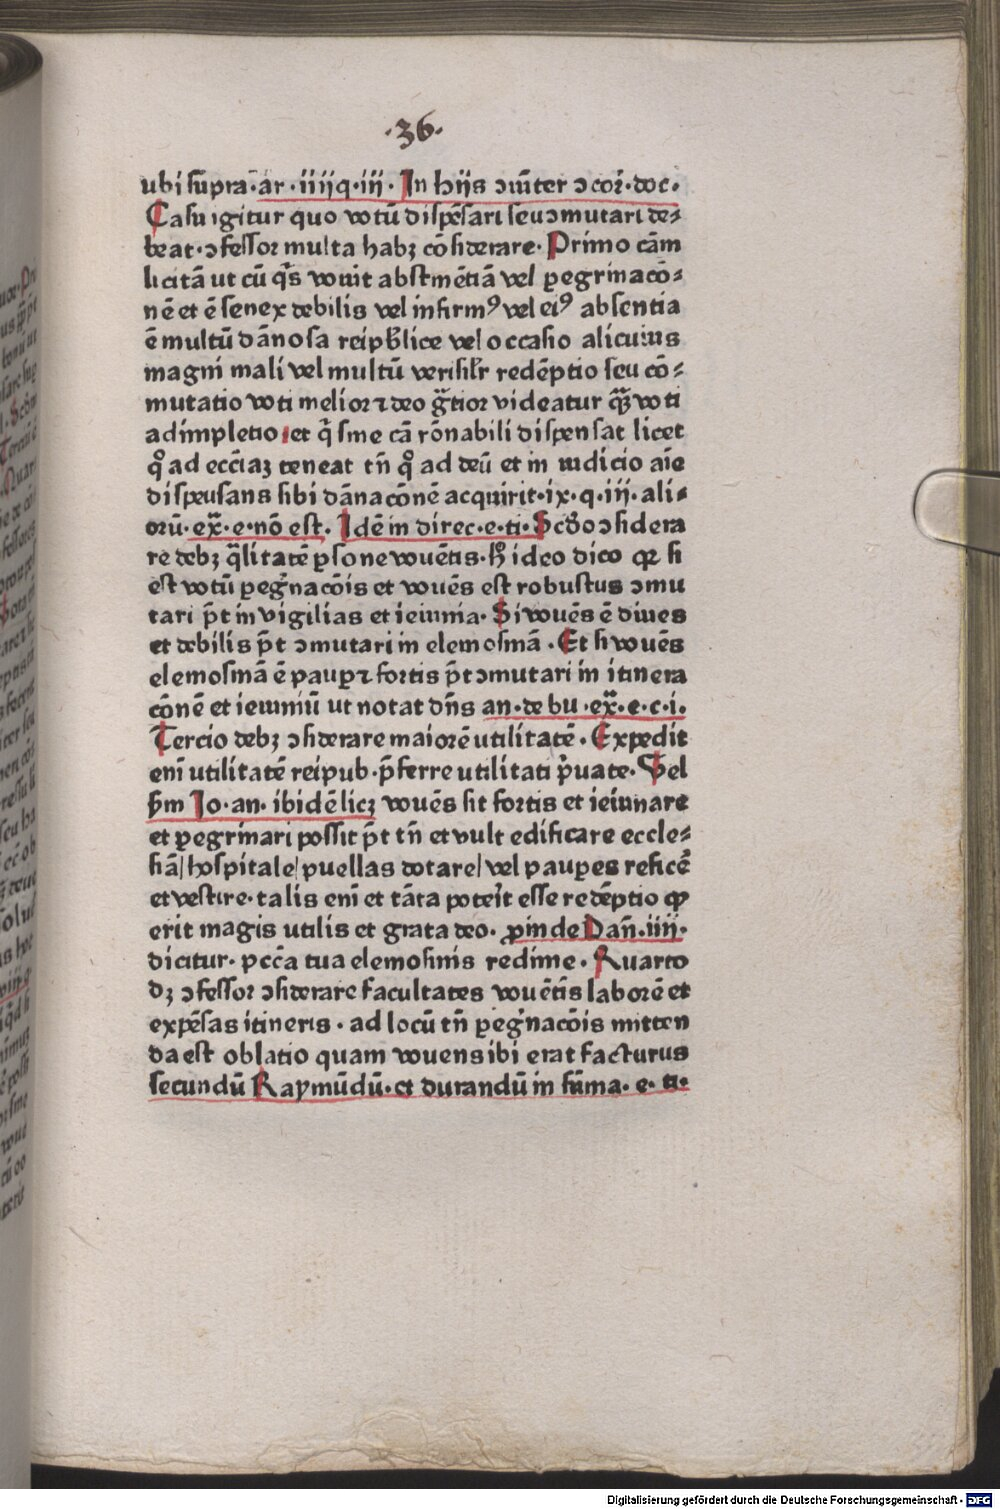 ·36·
ubi sup̄ra· ar·iiijq·iij· In hijs ɔiūter ɔcor̄·doc·
Casu igitur quo votū dispēsari seu ɔmutari de⸗
beat·ɔfessor multa habꝫ cōsiderare· Primo cām
licitā ut cū q̄s vouit abstinētiā vel ꝑegrinacō⸗
nē et ē senex debilis vel infirmꝰ vel eiꝰ absentia
ē multū dānosa reipb̄lice vel occasio alicuius
magni mali vel multū verisilr̄ redēptio seu cō⸗
mutatio voti melior ⁊ deo gr̄tior videatur qꝫ̄ voti
adimpletio·et q̄ sine cā rōnabili dispensat licet
qͦ ad eccīaꝫ teneat tn̄ qͦ ad deū et in iudicio aīe
dispeusans sibi dānacōnē acquirit·ix·q·iii·ali⸗
orū·ex̄·e·nō est. Idē in direc·e·ti· Scd̄o ɔsidera
re debꝫ q̄litatē ꝑsone vouētis·hͦ ideo dico ꝙ si
est votū ꝑegr̄nacōis et vouēs est robustus ɔmu
tari pōt in vigilias et ieiunia· Si vouēs ē diues
et debilis pōt ɔmutari in elemosinā·Et si vouēs
elemosinā ē paupꝑ ⁊ fortis pōt ɔmutari in itinera
cōnē et ieiuniū ut notat dn̄s an·de bu·ex̄·e·c·i·
Tercio debꝫ ɔsiderare maiorē utilitatē·Expedit
enī utilitatē reipub·p̄ferre utilitati pͥuate·Vel
sm̄ Jo·an·ibidē licꝫ vouēs sit fortis et ieiunare
et ꝑegrinari possit pōt tn̄ et vult edificare eccle⸗
siā|hospitale|puellas dotare|vel pauꝑes reficē
et vestire·talis enī et tāta poteīt esse redēptio ꝙ
erit magis utilis et grata deo· ꝓinde Dan̄·iiij·
dicitur·pcc̄a tua elemosinis redime·Quarto
dꝫ ɔfessor ɔsiderare facultates vouētis laborē et
expēsas itineris·ad locū tn̄ ꝑegr̄nacōis mitten
da est oblatio quam vouens ibi erat facturus
secundū Raymūdū·et durandū in sūma·e·ti·
Digitalisierung gefördert durch die Deutsche Forschungsgemeinschaft - DFG